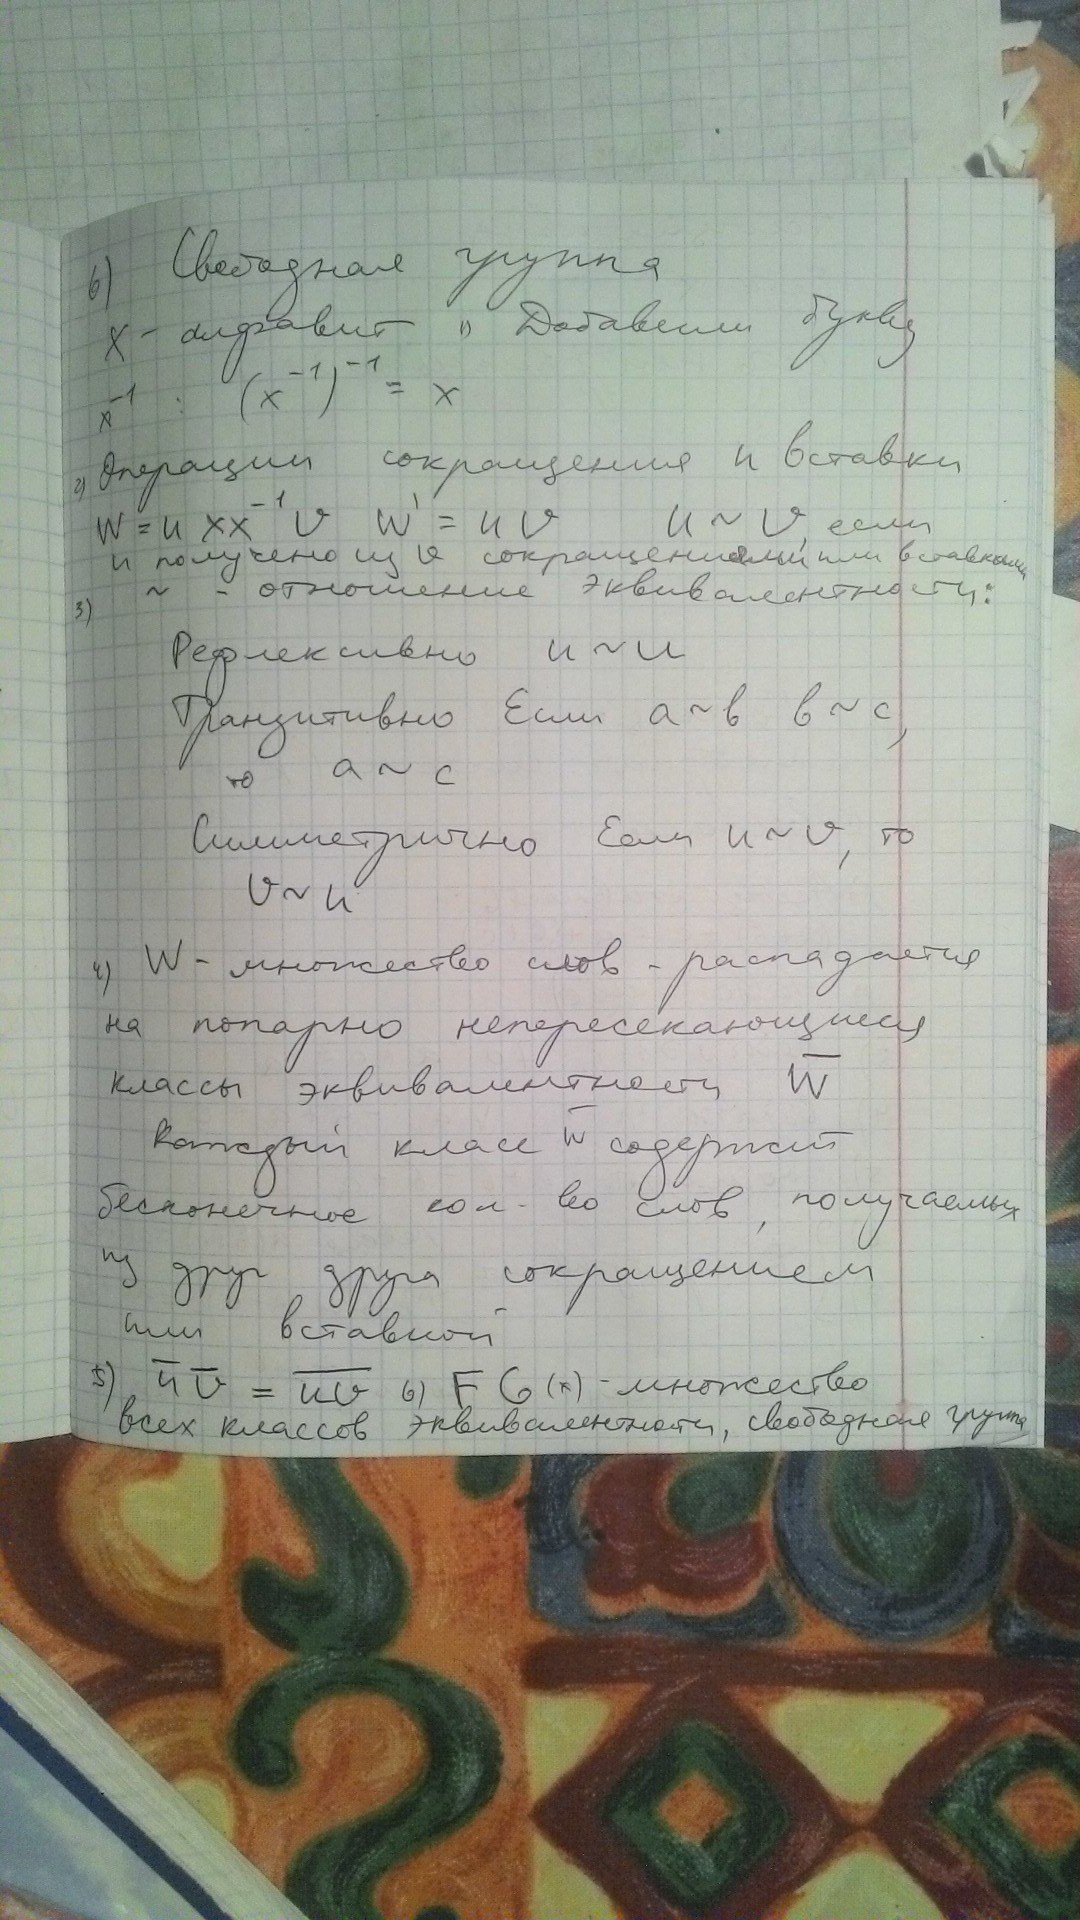 6) Свободная группа
X - алфавит 1) Добавели букву
x⁻¹ : (x⁻¹)⁻¹ = x
2) Операции сокращения и вставки
W = u xx⁻¹ v W' = uv u ~ v, если
u получено из v сокращениями или вставками
3) ~ - отношение эквивалентности:
Рефлексивно u ~ u
Транзитивно Если a ~ в в ~ c,
то a ~ c
Симметрично Если u ~ v, то
v ~ u
4) W - множество слов - распадается
на попарно непересекающиеся
классы эквивалентности W̅
Каждый класс w̅ содержит
бесконечное кол-во слов, получаемых
из друг друга сокращением
или вставкой
5) u̅ v̅ = u̅v̅ 6) FG(x) - множество
всех классов эквивалентности, свободная группа